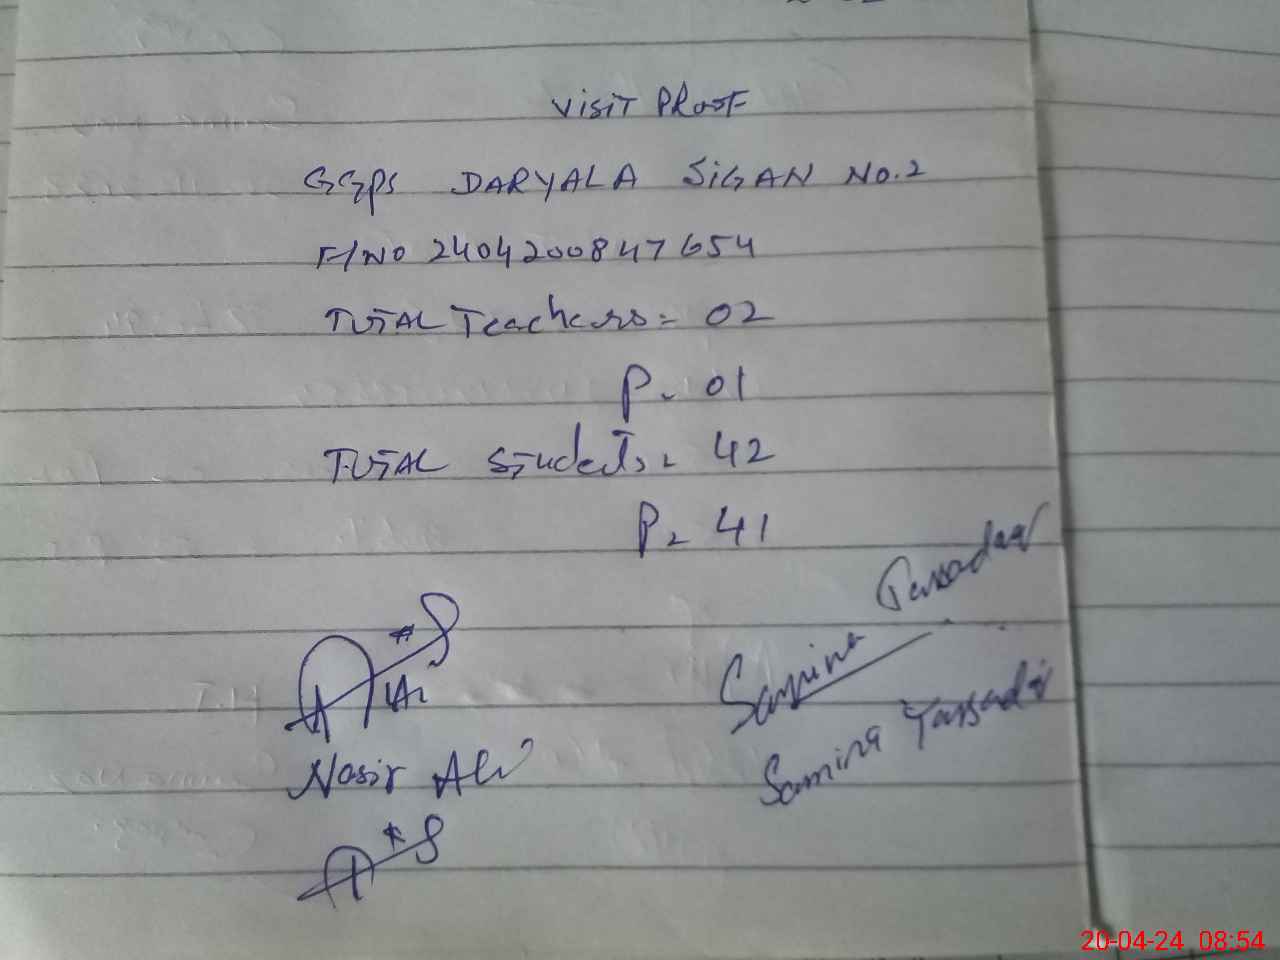 VISIT PROOF
GGPS DARYALA SIGAN NO.2
F/NO 2404200847654
TOTAL Teachers = 02
P = 01
TOTAL Students = 42
P = 41
Samina Tassadaq
Nasir Ali
Samina Tassadaq
20-04-24 08:54